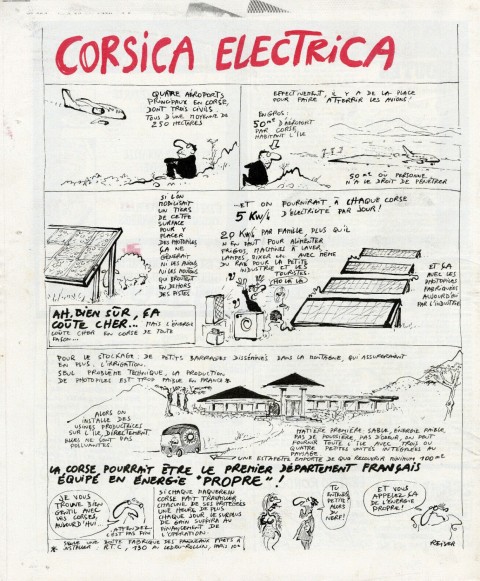 CORSICA ELECTRICA
QUATRE AÉROPORTS
PRINCIPAUX EN CORSE,
DONT TROIS CIVILS..
TOUS D'UNE MOYENNE DE
230 HECTARES
EFFECTIVEMENT, IL Y A DE LA PLACE
POUR FAIRE ATTERRIR LES AVIONS!
EN GROS:
50 m² D'AÉROPORT
PAR CORSE
HABITANT L'ÎLE
50 m² OÙ PERSONNE
N'A LE DROIT DE PÉNÉTRER
SI L'ON
MOBILISAIT
UN TIERS
DE CETTE
SURFACE
POUR Y
PLACER
DES PHOTOPILES
ÇA NE
GÊNERAIT
NI LES AVIONS
NI LES
QUI BROUTENT
EN DEHORS
DES PISTES
AH, BIEN SÛR, ÇA
COÛTE CHER... MAIS L'ÉNERGIE
COÛTE CHER EN CORSE DE TOUTE
FAÇON...
-ET ON FOURNIRAIT À CHAQUE CORSE
5 KW/h D'ÉLECTRICITÉ PAR JOUR!
20 KW/h PAR FAMILLE, PLUS QU'IL
N'EN FAUT POUR ALIMENTER
FRIGOS, MACHINES À LAVER,
LAMPES, MIXER.. AVEC MÊME
DU RAB POUR LA PETITE
INDUSTRIE ET LES
TOURISTES.
HO LÀ LÀ
ET ÇA
AVEC LES
PHOTOPILES
FABRIQUÉES
AUJOURD'HUI
PAR L'INDUSTRIE
POUR LE STOCKAGE: DE PETITS BARRAGES DISSÉMINÉS DANS LA MONTAGNE, QUI ASSURERAIENT
EN PLUS.. L'IRRIGATION.
SEUL PROBLÈME TECHNIQUE, LA PRODUCTION
DE PHOTOPILES EST TROP FAIBLE EN FRANCE *
ALORS ON
INSTALLE DES
USINES PRODUCTRICES
SUR L'ÎLE, DIRECTEMENT.
ELLES NE SONT PAS
POLLUANTES.
MATIÈRE PREMIÈRE SABLE, ÉNERGIE FAIBLE,
PAS DE POUSSIÈRE, PAS D'ODEUR, ON PEUT
FOURNIR TOUTE L'ÎLE AVEC TROIS OU
QUATRE PETITES UNITÉS INTÉGRÉES AU
PAYSAGE
UNE ESTAFETTE EMPORTE DE QUOI RECOUVRIR MINIMUM 100 m²
LA CORSE POURRAIT ÊTRE LE PREMIER DÉPARTEMENT FRANÇAIS
ÉQUIPÉ EN ÉNERGIE "PROPRE"!
JE VOUS
TROUVE BIEN
GENTIL AVEC
LES CORSES,
AUJOURD'HUI..
ATTENDEZ
C'EST PAS FINI
SI CHAQUE MAQUEREAU
CORSE FAIT TRAVAILLER
CHACUNE DE SES PROTÉGÉES
UNE HEURE DE PLUS
CHAQUE JOUR, LE SURPLUS
DE GAIN SUFFIRA AU
FINANCEMENT DE
L'OPÉRATION
TU
ENTENDS,
PETITE!
ALORS
DU NERF!
ET VOUS
APPELEZ ÇA
DE L'ÉNERGIE
PROPRE!
* SEULE UNE BOÎTE FABRIQUE DES PANNEAUX PRÊTS À
INSTALLER R.T.C, 130 AV LEDRU-ROLLIN, PARIS
REISER